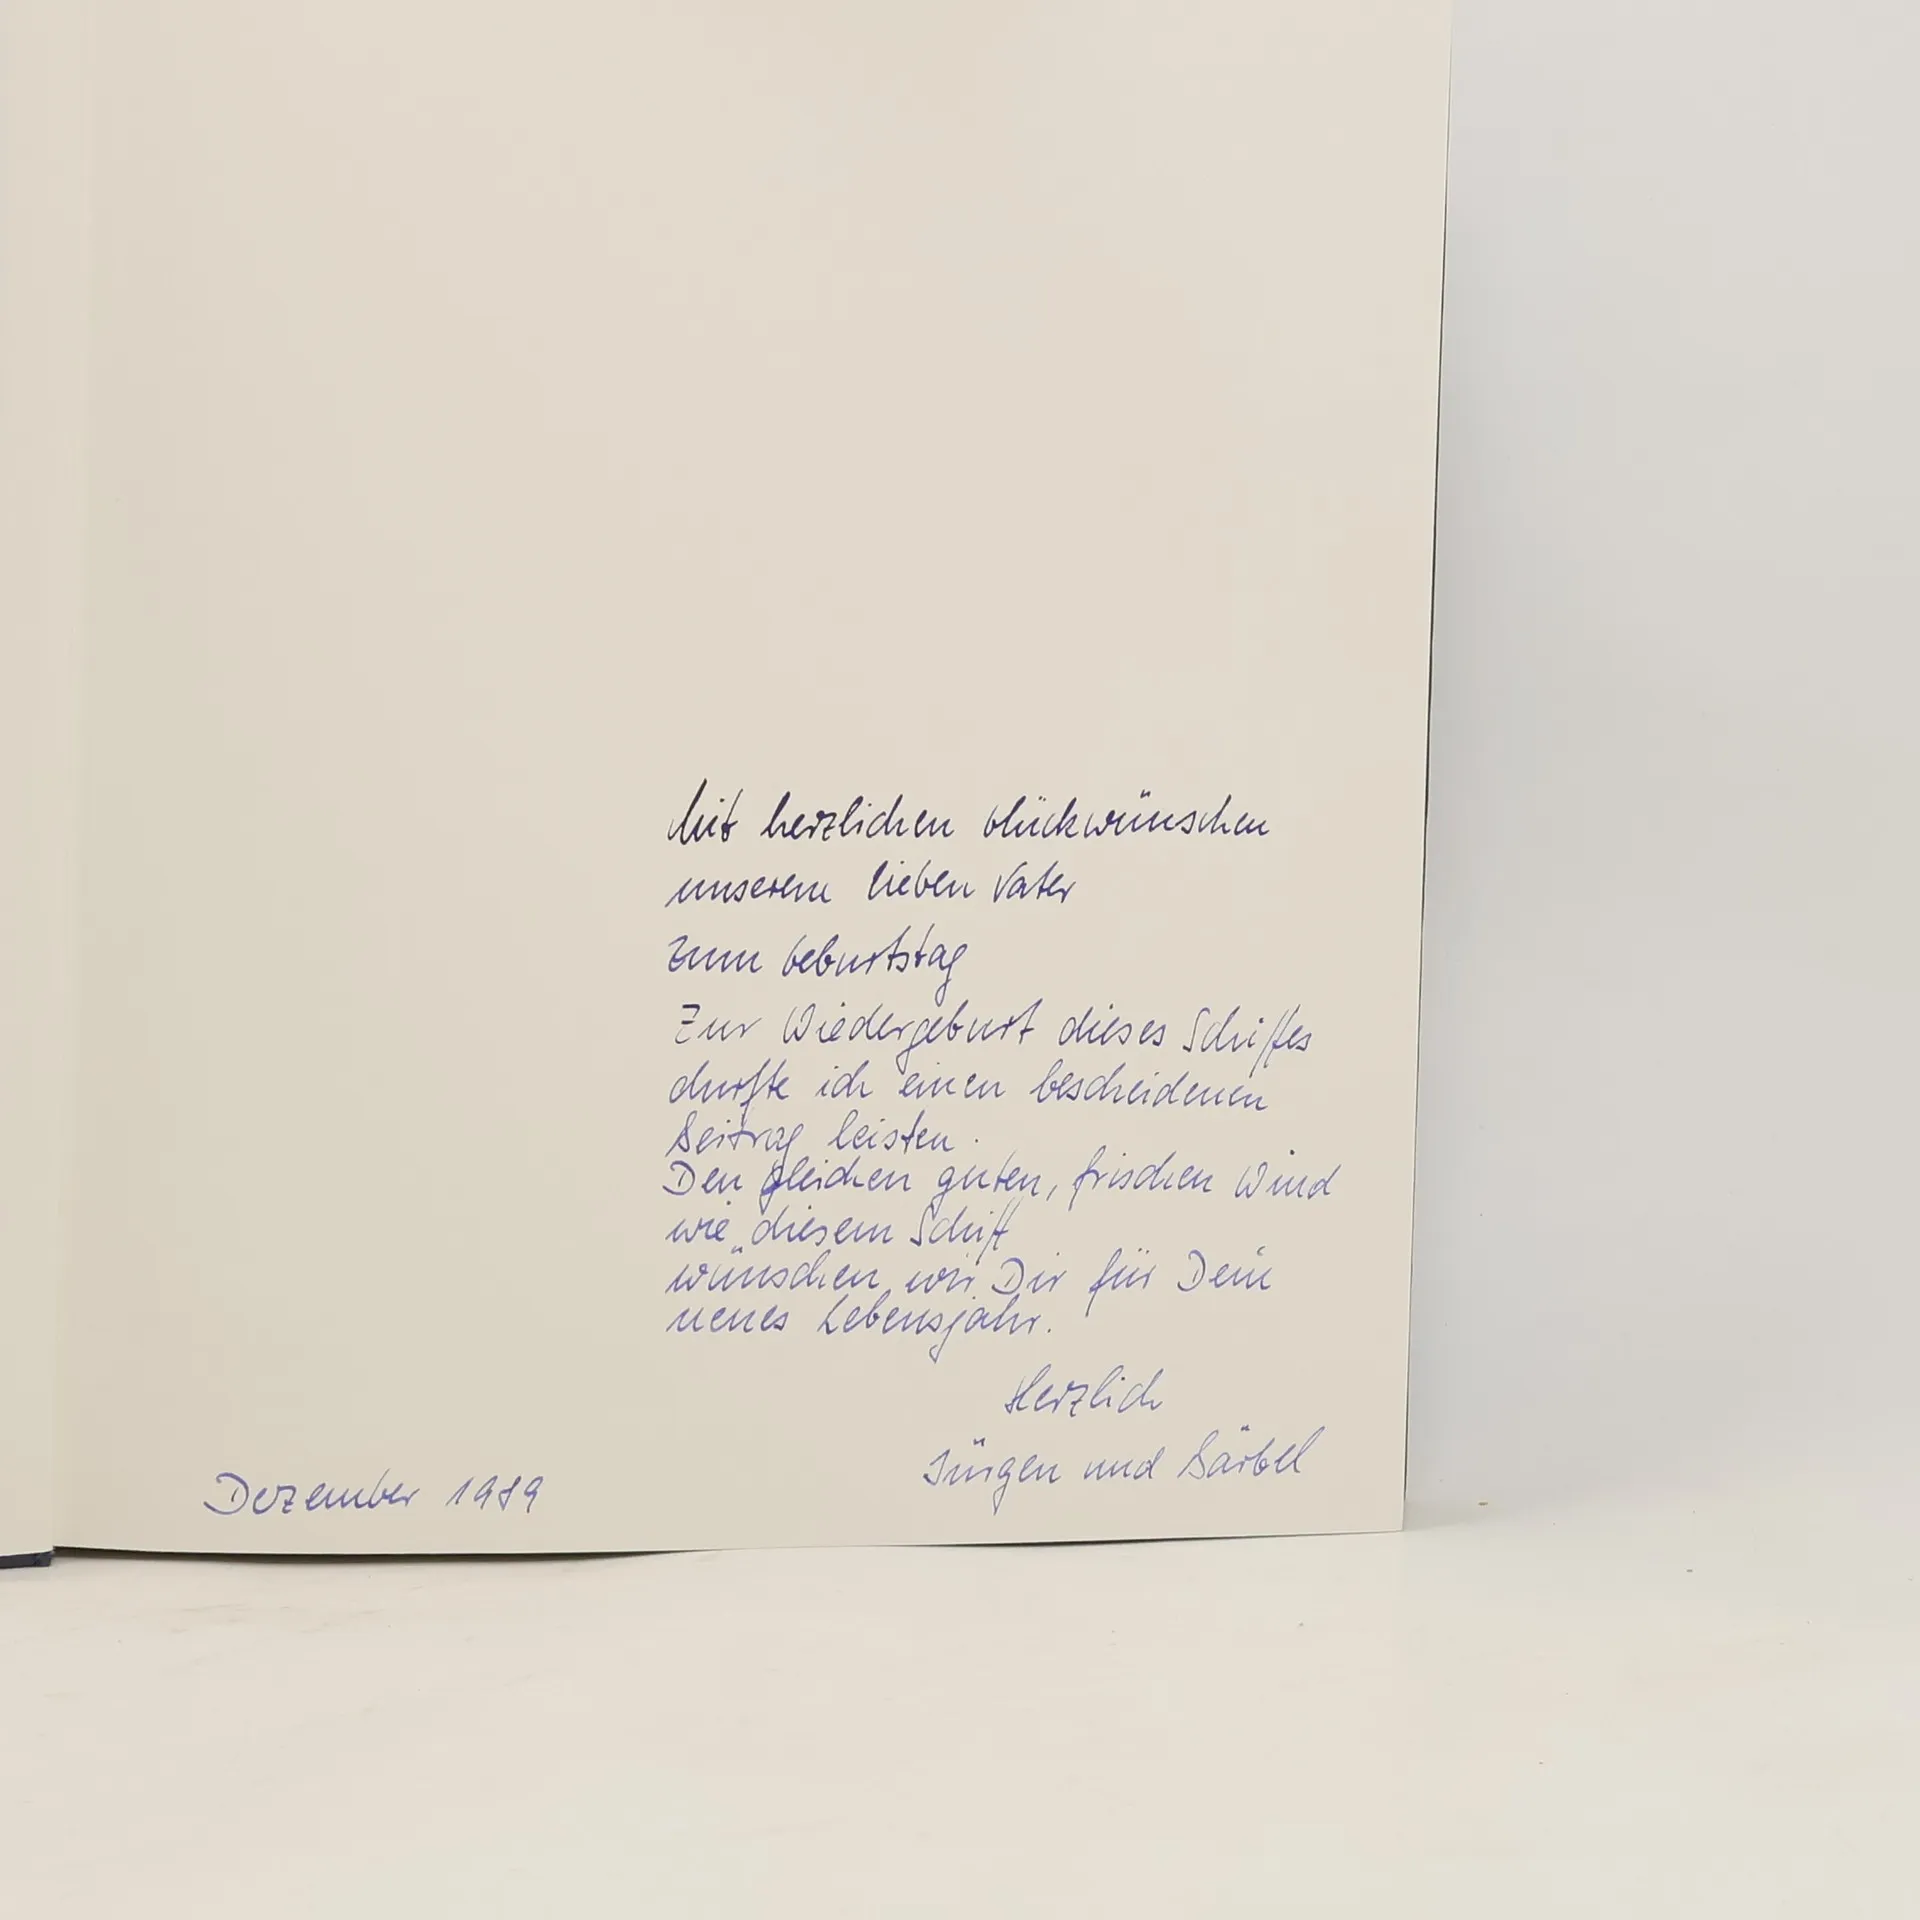 Mit herzlichen Glückwünschen
unserem lieben Vater
zum Geburtstag
Zur Wiedergeburt dieses Schiffes
durfte ich einen bescheidenen
Beitrag leisten.
Den gleichen guten, frischen Wind
wie diesem Schiff
wünschen wir Dir für Dein
neues Lebensjahr.
Herzlich
Jürgen und Bärbel
Dezember 1989